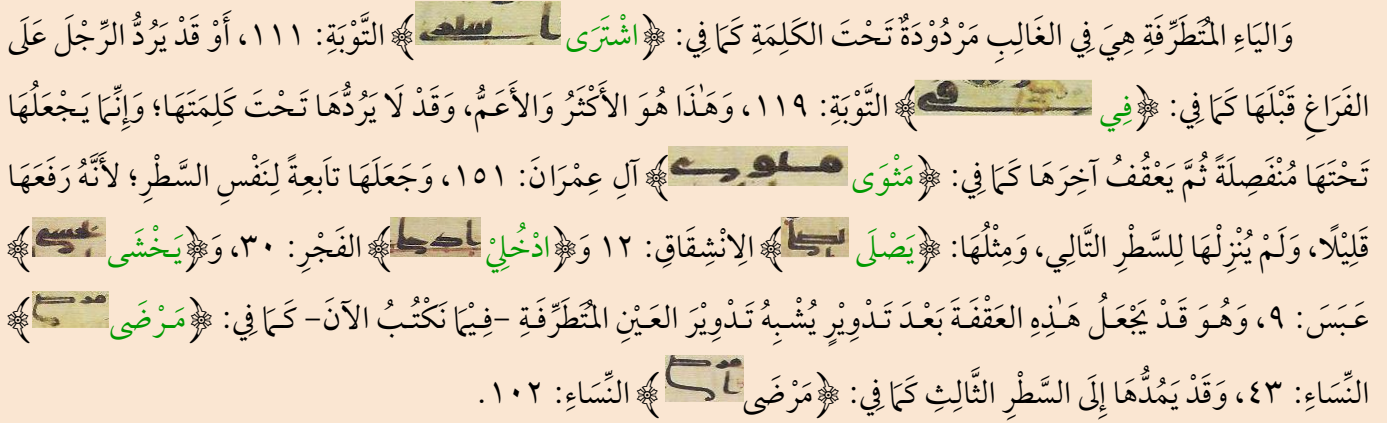 وَاليَاءِ المُتَطَرِّفَةِ هِيَ فِي الغَالِبِ مَرْدُودَةٌ تَحْتَ الكَلِمَةِ كَمَا فِي: ﴿اشْتَرَى ﴾ التَّوْبَةِ: ١١١، أَوْ قَدْ يَرُدُّ الرِّجْلَ عَلَى
الفَرَاغِ قَبْلَهَا كَمَا فِي: ﴿فِي ﴾ التَّوْبَةِ: ١١٩، وَهَٰذَا هُوَ الأَكْثَرُ وَالأَعَمُّ، وَقَدْ لَا يَرُدُّهَا تَحْتَ كَلِمَتَهَا؛ وَإِنَّمَا يَجْعَلُهَا
تَحْتَهَا مُنْفَصِلَةً ثُمَّ يَعْقُفُ آخِرَهَا كَمَا فِي: ﴿مَثْوَى ﴾ آلِ عِمْرَانَ: ١٥١، وَجَعَلَهَا تَابِعةً لِنَفْسِ السَّطْرِ؛ لأَنَّهُ رَفَعَهَا
قَلِيْلًا، وَلَمْ يُنْزِلْهَا لِلسَّطْرِ التَّالِي، وَمِثْلُهَا: ﴿يَصْلَى ﴾ الِانْشِقَاقِ: ١٢ وَ﴿ادْخُلِيْ ﴾ الفَجْرِ: ٣٠، وَ﴿يَخْشَى ﴾
عَبَسَ: ٩، وَهُوَ قَدْ يَجْعَلُ هَٰذِهِ العَقْفَةَ بَعْدَ تَدْوِيْرٍ يُشْبِهُ تَدْوِيْرَ العَيْنِ المُتَطَرِّفَةِ -فِيْمَا نَكْتُبُ الآنَ- كَمَا فِي: ﴿مَرْضَى ﴾
النِّسَاءِ: ٤٣، وَقَدْ يَمُدُّهَا إِلَى السَّطْرِ الثَّالِثِ كَمَا فِي: ﴿مَرْضَى ﴾ النِّسَاءِ: ١٠٢.